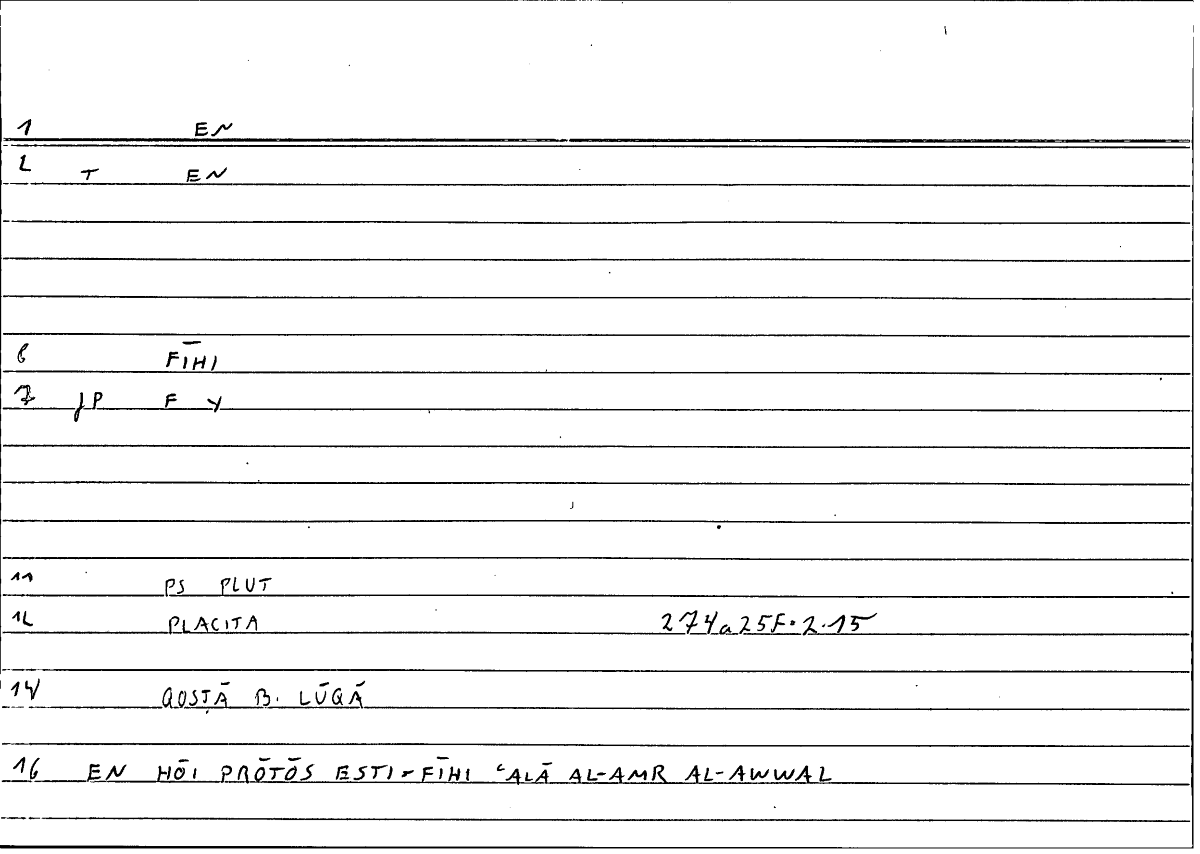 1 EN
2 T EN
6 FĪHI
7 JP F Y
11 PS PLUT
12 PLACITA 274a25F.2.15
14 QOSṬĀ B. LŪQĀ
16 EN HŌI PRŌTŌS ESTI=FĪHI ʿALĀ AL-AMR AL-AWWAL